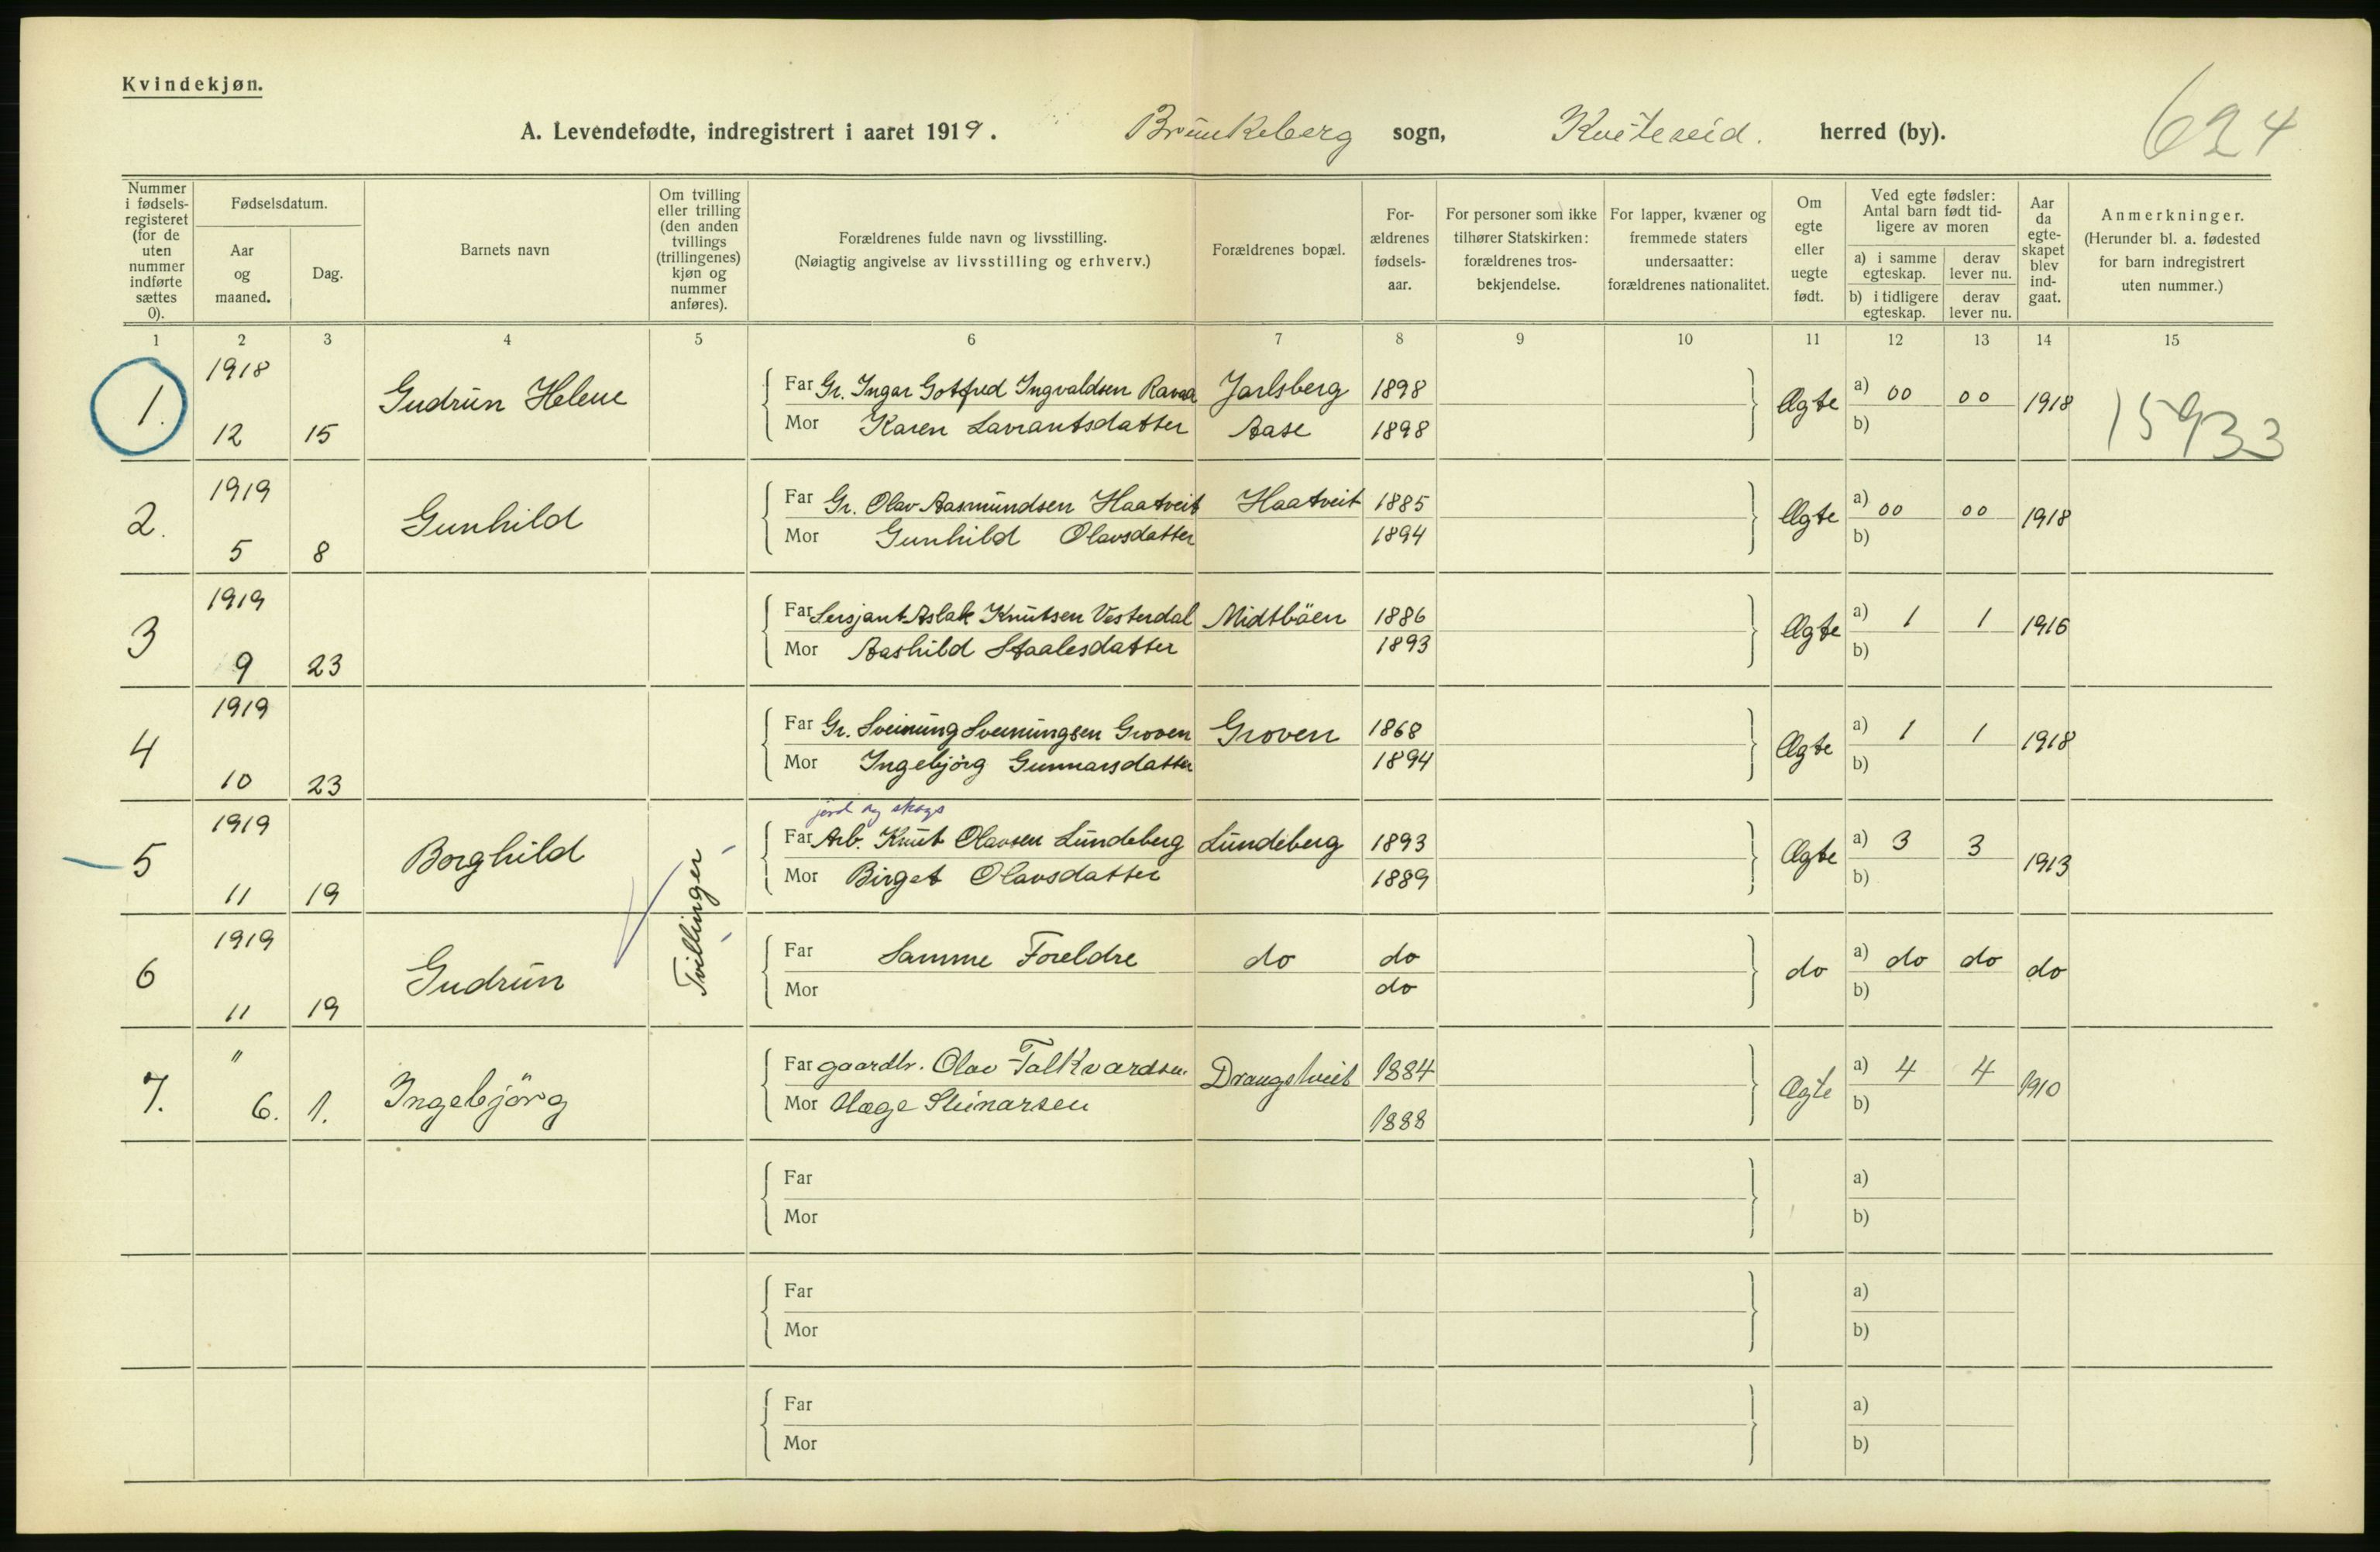 Kvindekjøn.
A. Levendefødte, indregistrert i aaret 1919. Brunkeberg sogn, Kviteseid. herred (by). 624
Nummer i fødselsregisteret (for de uten nummer indførte sættes 0).
Fødselsdatum.
Aar og maaned.
Dag.
Barnets navn
Om tvilling eller trilling (den anden tvillings (trillingenes) kjøn og nummer anføres).
Forældrenes fulde navn og livsstilling.
(Nøiagtig angivelse av livsstilling og erhverv.)
Forældrenes bopæl.
Forældrenes fødselsaar.
For personer som ikke tilhører Statskirken: forældrenes trosbekjendelse.
For lapper, kvæner og fremmede staters undersaatter: forældrenes nationalitet.
Om egte eller uegte født.
Ved egte fødsler: Antal barn født tidligere av moren
a) i samme egteskap. derav lever nu.
b) i tidligere egteskap. derav lever nu.
Aar da egteskapet blev indgaat.
Anmerkninger.
(Herunder bl. a. fødested for barn indregistrert uten nummer.)
1 2 3 4 5 6 7 8 9 10 11 12 13 14 15
1. 1918 12 15 Gudrun Helene
Far Gr. Ingar Gotfred Ingvaldsen Ravaa Jarlsberg 1898 Ægte a) 00 00 1918 15933
Mor Karen Lavrantsdatter Aase 1898 b)
2. 1919 5 8 Gunhild
Far Gr. Olav Aasmundsen Haatveit Haatveit 1885 Ægte a) 00 00 1918
Mor Gunhild Olavsdatter 1894 b)
3 1919 9 23
Far Sersjant Aslak Knutsen Vesterdal Midtböen 1886 Ægte a) 1 1 1916
Mor Aashild Staalesdatter 1893 b)
4 1919 10 23
Far Gr. Sveinung Sveinungsen Groven Groven 1868 Ægte a) 1 1 1918
Mor Ingebjörg Gunnarsdatter 1894 b)
jord og skogs
5 1919 11 19 Borghild Tvillinger
Far Arb. Knut Olavsen Lundeberg Lundeberg 1893 Ægte a) 3 3 1913
Mor Birget Olavsdatter 1889 b)
6 1919 11 19 Gudrun
Far Samme Foreldre do do do a) do do do
Mor do b)
7. " 6. 1. Ingebjörg
Far gaardbr. Olav Talkvardsen Draugstveit 1884 Ægte a) 4 4 1910
Mor Hæge Steinarsen 1888 b)
Far a)
Mor b)
Far a)
Mor b)
Far a)
Mor b)